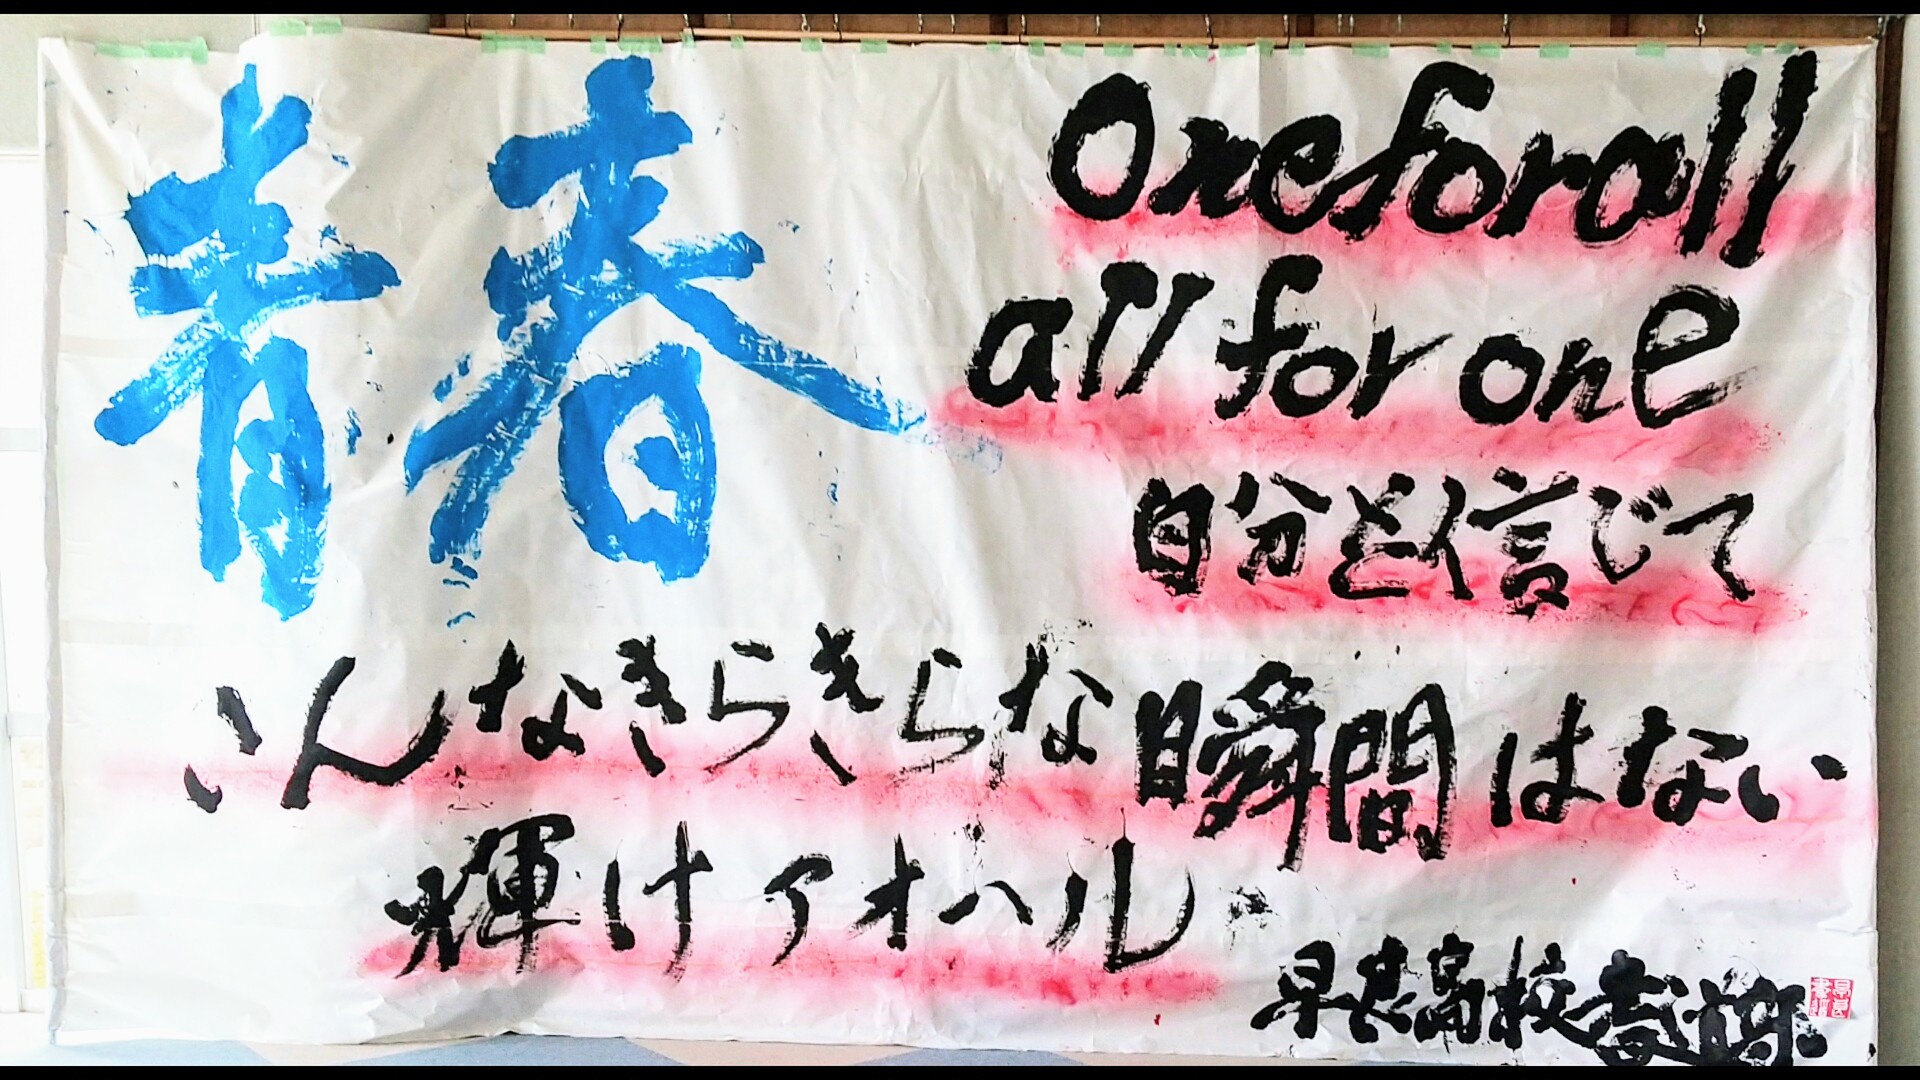 青春
One for all
all for one
自分を信じて
こんなきらきらな瞬間はない
輝けアオハル
早良高校書道部